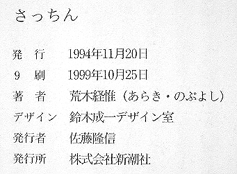 さっちん
発 行 1994年11月20日
9 刷 1999年10月25日
著 者 荒木経惟（あらき・のぶよし）
デザイン 鈴木成一デザイン室
発行者 佐藤隆信
発行所 株式会社新潮社